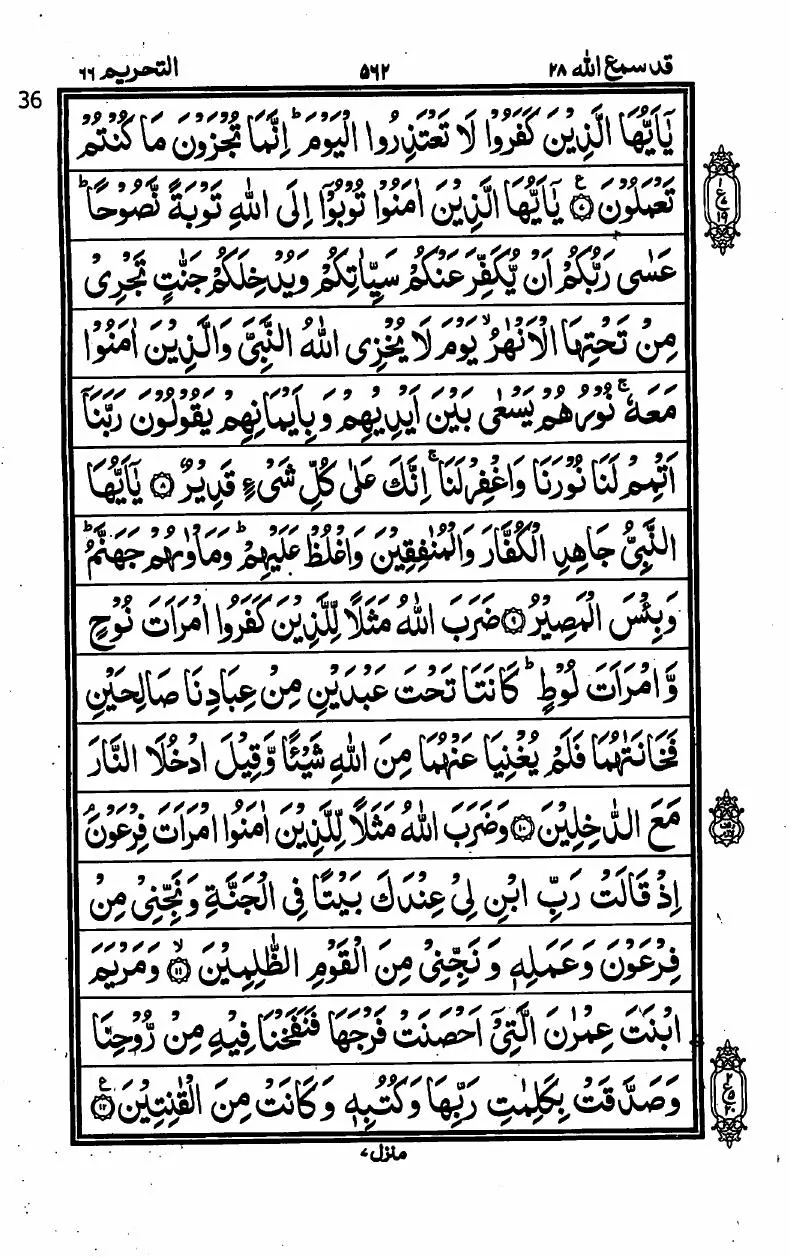 قد سمع الله ٢٨
٥٦٢
التحريم ٦٦
36
يٰۤاَيُّهَا الَّذِيْنَ كَفَرُوْا لَا تَعْتَذِرُوا الْيَوْمَ ؕ اِنَّمَا تُجْزَوْنَ مَا كُنْتُمْ
تَعْمَلُوْنَ ۧ‏﴿۷﴾ يٰۤاَيُّهَا الَّذِيْنَ اٰمَنُوْا تُوْبُوْۤا اِلَى اللّٰهِ تَوْبَةً نَّصُوْحًا ؕ
عَسٰى رَبُّكُمْ اَنْ يُّكَفِّرَ عَنْكُمْ سَيِّاٰتِكُمْ وَيُدْخِلَكُمْ جَنّٰتٍ تَجْرِىْ
مِنْ تَحْتِهَا الْاَنْهٰرُ ۙ يَوْمَ لَا يُخْزِى اللّٰهُ النَّبِىَّ وَالَّذِيْنَ اٰمَنُوْا
مَعَهٗ ۚ نُوْرُهُمْ يَسْعٰى بَيْنَ اَيْدِيْهِمْ وَبِاَيْمَانِهِمْ يَقُوْلُوْنَ رَبَّنَاۤ
اَتْمِمْ لَنَا نُوْرَنَا وَاغْفِرْ لَنَا ۚ اِنَّكَ عَلٰى كُلِّ شَىْءٍ قَدِيْرٌ ﴿۸﴾ يٰۤاَيُّهَا
النَّبِىُّ جَاهِدِ الْكُفَّارَ وَالْمُنٰفِقِيْنَ وَاغْلُظْ عَلَيْهِمْ ؕ وَمَاْوٰىهُمْ جَهَنَّمُ ؕ
وَبِئْسَ الْمَصِيْرُ ﴿۹﴾ ضَرَبَ اللّٰهُ مَثَلًا لِّلَّذِيْنَ كَفَرُوا امْرَاَتَ نُوْحٍ
وَّامْرَاَتَ لُوْطٍ ؕ كَانَتَا تَحْتَ عَبْدَيْنِ مِنْ عِبَادِنَا صَالِحَيْنِ
فَخَانَتٰهُمَا فَلَمْ يُغْنِيَا عَنْهُمَا مِنَ اللّٰهِ شَيْئًا وَّقِيْلَ ادْخُلَا النَّارَ
مَعَ الدّٰخِلِيْنَ ﴿۱۰﴾ وَضَرَبَ اللّٰهُ مَثَلًا لِّلَّذِيْنَ اٰمَنُوا امْرَاَتَ فِرْعَوْنَ ۘ
اِذْ قَالَتْ رَبِّ ابْنِ لِىْ عِنْدَكَ بَيْتًا فِى الْجَنَّةِ وَنَجِّنِىْ مِنْ
فِرْعَوْنَ وَعَمَلِهٖ وَنَجِّنِىْ مِنَ الْقَوْمِ الظّٰلِمِيْنَ ۙ‏﴿۱۱﴾ وَمَرْيَمَ
ابْنَتَ عِمْرٰنَ الَّتِىْۤ اَحْصَنَتْ فَرْجَهَا فَنَفَخْنَا فِيْهِ مِنْ رُّوْحِنَا
وَصَدَّقَتْ بِكَلِمٰتِ رَبِّهَا وَكُتُبِهٖ وَكَانَتْ مِنَ الْقٰنِتِيْنَ ۧ‏﴿۱۲﴾
١
ع
٧
١٩
٢
ع
٥
٢٠
منزل ٧